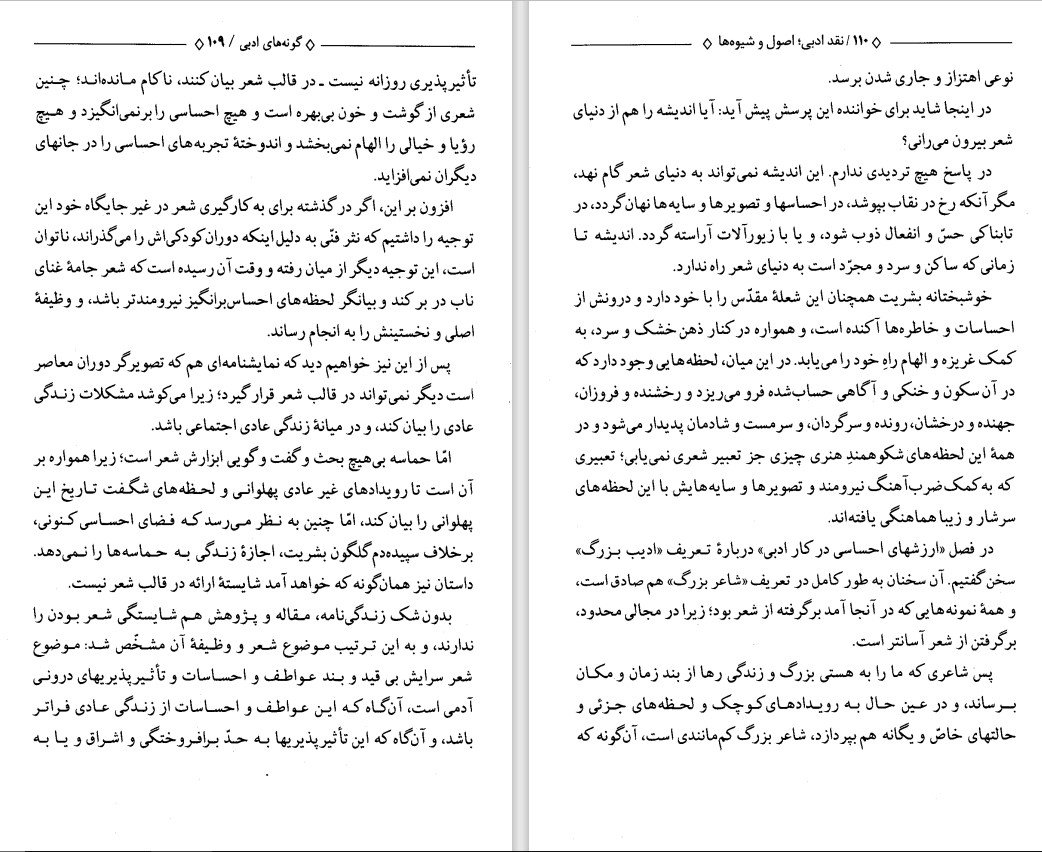 ◊ گونه‌های ادبی / ۱۰۹ ◊
تأثیرپذیری روزانه نیست ـ در قالب شعر بیان کنند، ناکام مانده‌اند؛ چنین
شعری از گوشت و خون بی‌بهره است و هیچ احساسی را برنمی‌انگیزد و هیچ
رؤیا و خیالی را الهام نمی‌بخشد و اندوختهٔ تجربه‌های احساسی را در جانهای
دیگران نمی‌افزاید.
افزون بر این، اگر در گذشته برای به کارگیری شعر در غیر جایگاه خود این
توجیه را داشتیم که نثر فنّی به دلیل اینکه دوران کودکی‌اش را می‌گذراند، ناتوان
است، این توجیه دیگر از میان رفته و وقت آن رسیده است که شعر جامهٔ غنای
ناب در بر کند و بیانگر لحظه‌های احساس‌برانگیز نیرومندتر باشد، و وظیفهٔ
اصلی و نخستینش را به انجام رساند.
پس از این نیز خواهیم دید که نمایشنامه‌ای هم که تصویرگر دوران معاصر
است دیگر نمی‌تواند در قالب شعر قرار گیرد؛ زیرا می‌کوشد مشکلات زندگی
عادی را بیان کند، و در میانهٔ زندگی عادی اجتماعی باشد.
امّا حماسه بی‌هیچ بحث و گفت و گویی ابزارش شعر است؛ زیرا همواره بر
آن است تا رویدادهای غیر عادی پهلوانی و لحظه‌های شگفت تاریخ این
پهلوانی را بیان کند، امّا چنین به نظر می‌رسد که فضای احساسی کنونی،
برخلاف سپیده‌دم گلگون بشریت، اجازهٔ زندگی به حماسه‌ها را نمی‌دهد.
داستان نیز همان‌گونه که خواهد آمد شایستهٔ ارائه در قالب شعر نیست.
بدون شک زندگی‌نامه، مقاله و پژوهش هم شایستگی شعر بودن را
ندارند، و به این ترتیب موضوع شعر و وظیفهٔ آن مشخّص شد: موضوع
شعر سرایش بی قید و بند عواطف و احساسات و تأثیرپذیریهای درونی
آدمی است، آن‌گاه که این عواطف و احساسات از زندگی عادی فراتر
باشد، و آن‌گاه که این تأثیرپذیریها به حدّ برافروختگی و اشراق و یا به
◊ ۱۱۰ / نقد ادبی؛ اصول و شیوه‌ها ◊
نوعی اهتزاز و جاری شدن برسد.
در اینجا شاید برای خواننده این پرسش پیش آید: آیا اندیشه را هم از دنیای
شعر بیرون می‌رانی؟
در پاسخ هیچ تردیدی ندارم. این اندیشه نمی‌تواند به دنیای شعر گام نهد،
مگر آنکه رخ در نقاب بپوشد، در احساسها و تصویرها و سایه‌ها نهان گردد، در
تابناکی حسّ و انفعال ذوب شود، و یا با زیورآلات آراسته گردد. اندیشه تا
زمانی که ساکن و سرد و مجرّد است به دنیای شعر راه ندارد.
خوشبختانه بشریت همچنان این شعلهٔ مقدّس را با خود دارد و درونش از
احساسات و خاطره‌ها آکنده است، و همواره در کنار ذهن خشک و سرد، به
کمک غریزه و الهام راهِ خود را می‌یابد. در این میان، لحظه‌هایی وجود دارد که
در آن سکون و خنکی و آگاهی حساب‌شده فرو می‌ریزد و رخشنده و فروزان،
جهنده و درخشان، رونده و سرگردان، و سرمست و شادمان پدیدار می‌شود و در
همهٔ این لحظه‌های شکوهمندِ هنری چیزی جز تعبیر شعری نمی‌یابی؛ تعبیری
که به کمک ضرب‌آهنگ نیرومند و تصویرها و سایه‌هایش با این لحظه‌های
سرشار و زیبا هماهنگی یافته‌اند.
در فصل «ارزشهای احساسی در کار ادبی» دربارهٔ تعریف «ادیب بزرگ»
سخن گفتیم. آن سخنان به طور کامل در تعریف «شاعر بزرگ» هم صادق است،
و همهٔ نمونه‌هایی که در آنجا آمد برگرفته از شعر بود؛ زیرا در مجالی محدود،
برگرفتن از شعر آسانتر است.
پس شاعری که ما را به هستی بزرگ و زندگی رها از بند زمان و مکان
برساند، و در عین حال به رویدادهای کوچک و لحظه‌های جزئی و
حالتهای خاصّ و یگانه هم بپردازد، شاعر بزرگ کم‌مانندی است، آن‌گونه که